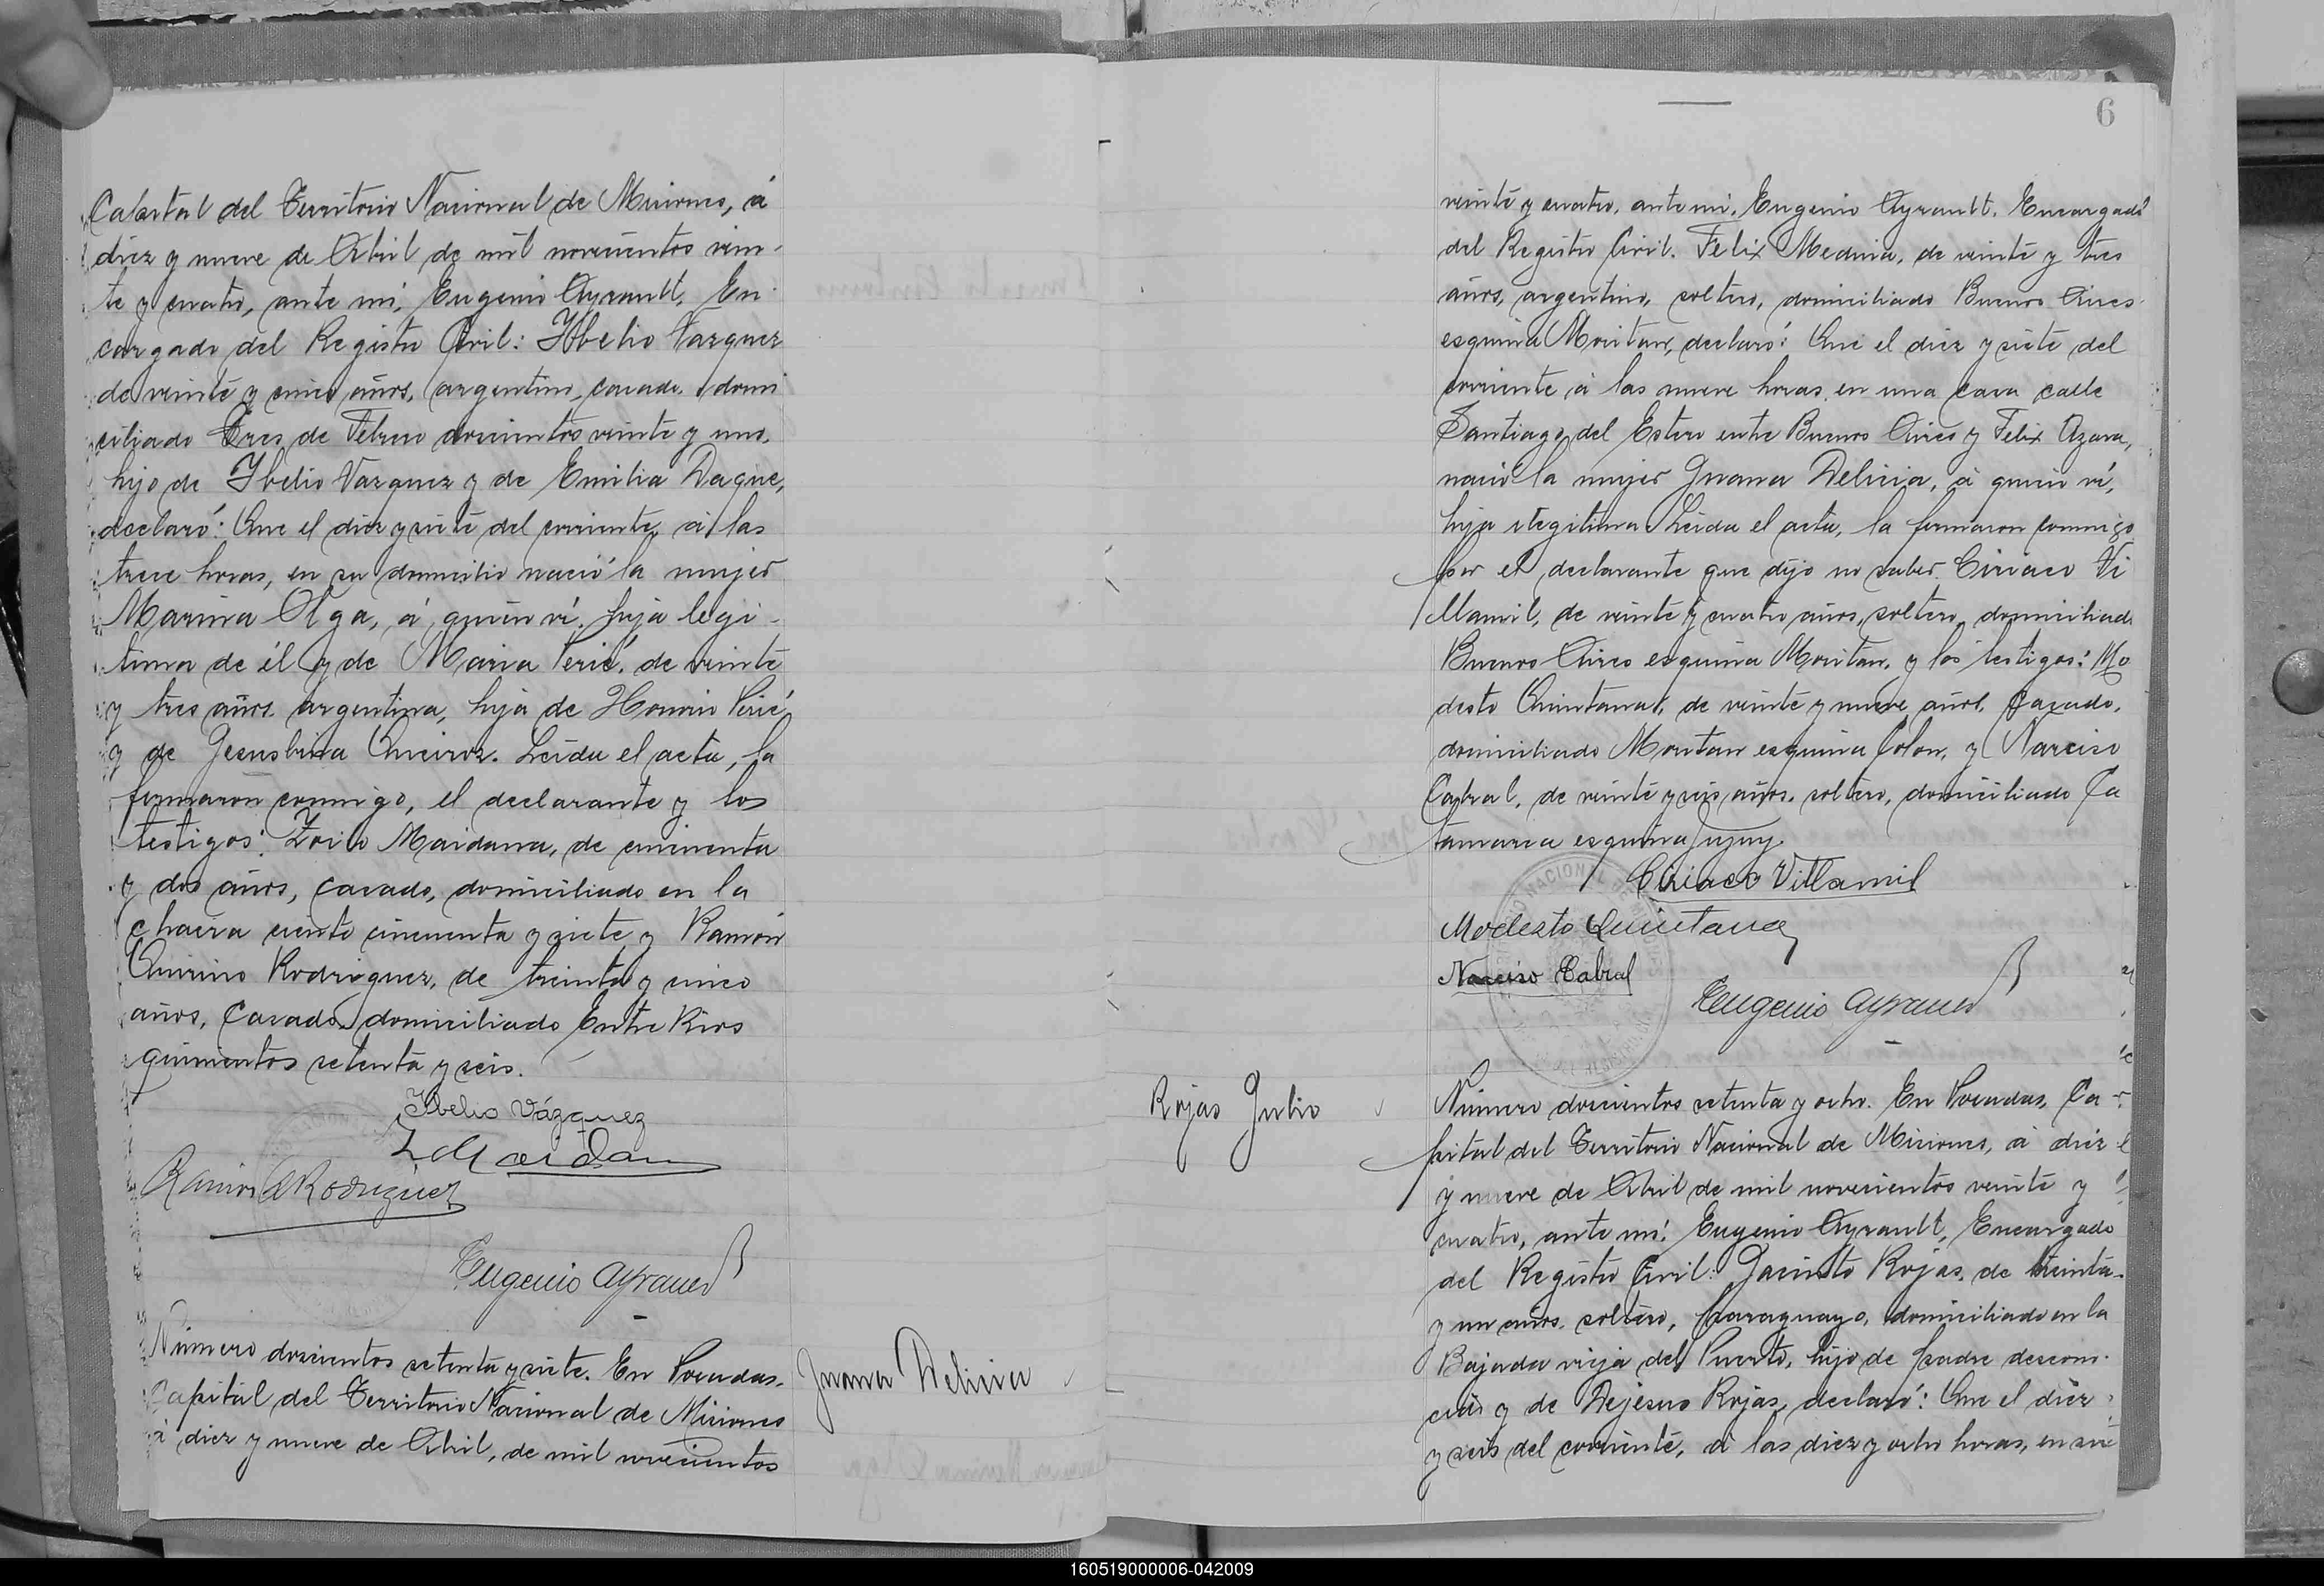 Capital del Territorio Nacional de Misiones, á
diez y nueve de Abril de mil novecientos vein-
te y cuatro, ante mi, Eugenio Ayrault, En-
cargado del Registro Civil: Ibelio Vazquez
de veinte y cinco años, argentino, casado, domi
ciliado Tres de Febrero doscientos veinte y uno,
hijo de Ibelio Vazquez y de Emilia Daque,
declaró: Que el diez y siete del corriente, á las
trece horas, en su domicilio nació la mujer
Marina Olga, á quien ví, hija legi-
tima de él y de Maria Perié, de veinte
y tres años, argentina, hija de Honorio Perié
y de Jesusbina Queiroz. Leida el acta, la
firmaron conmigo, el declarante y los
testigos: Zoilo Maidana, de cincuenta
y dos años, casado, domiciliado en la
chacra ciento cincuenta y siete y Ramón
Quirino Rodriguez, de treinta y cinco
años, casado, domiciliado Entre Rios
quinientos setenta y seis.
Ibelio Vázquez
Z Maidana
Ramon Q Rodriguez
Eugenio Ayrault
Número doscientos setenta y siete. En Posadas,
Capital del Territorio Nacional de Misiones
á diez y nueve de Abril, de mil novecientos
Juana Delicia
6
veinte y cuatro, ante mi, Eugenio Ayrault, Encargado
del Registro Civil. Felix Medina, de veinte y tres
años, argentino, soltero, domiciliado Buenos Aires
esquina Moritan, declaró: Que el diez y siete del
corriente á las nueve horas, en una casa calle
Santiago del Estero entre Buenos Aires y Felix Azara,
nació la mujer Juana Delicia, á quien ví,
hija ilegitima. Leida el acta, la firmaron conmigo
por el declarante que dijo no saber Ciriaco Vi
llamil, de veinte y cuatro años, soltero, domiciliado
Buenos Aires esquina Moritan, y los testigos: Mo
desto Quintana, de veinte y nueve años, casado,
domiciliado Moritan esquina Colon, y Narciso
Cabral, de veinte y seis años, soltero, domiciliado Ca
tamarca esquina Jujuy
Ciriaco Villamil
Modesto Quintana
Narciso Cabral
Eugenio Ayrault
Rojas Julio
Número doscientos setenta y ocho. En Posadas, Ca-
pital del Territorio Nacional de Misiones, á diez
y nueve de Abril de mil novecientos veinte y
cuatro, ante mi: Eugenio Ayrault, Encargado
del Registro Civil: Jacinto Rojas, de treinta
y un años, soltero, paraguayo, domiciliado en la
Bajada vieja del Puerto, hijo de padre descono-
cido y de Dejesus Rojas, declaró: Que el diez
y seis del corriente, á las diez y ocho horas, en su
160519000006-042009